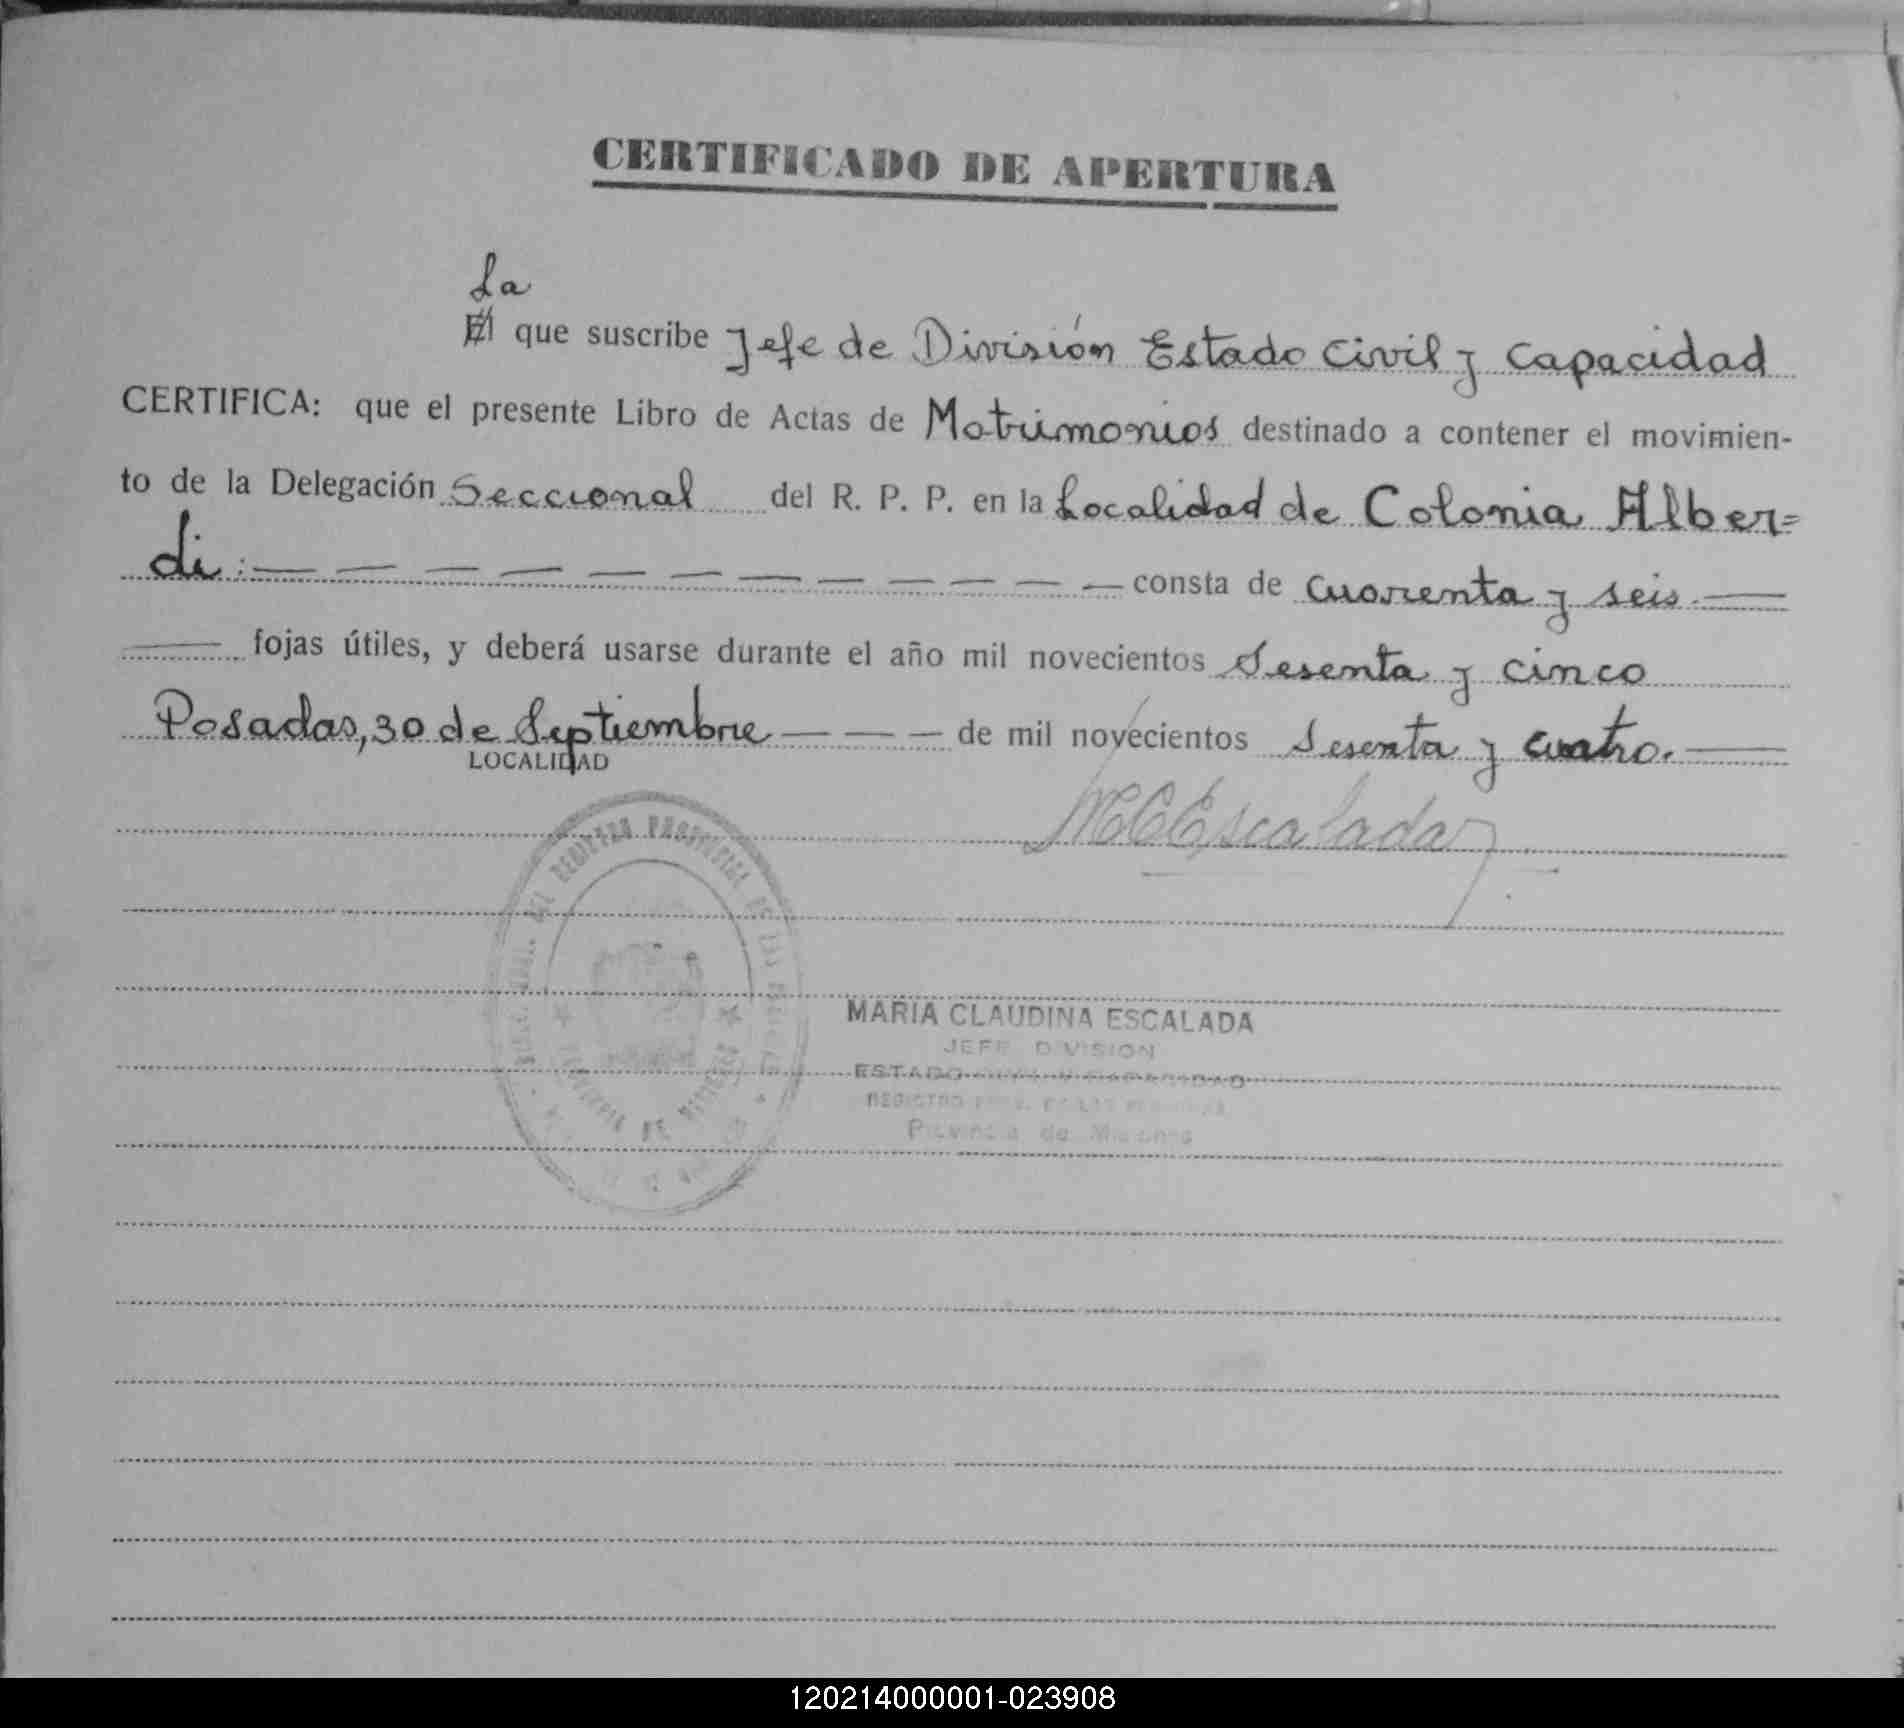 CERTIFICADO DE APERTURA
La
El que suscribe Jefe de División Estado Civil y Capacidad
CERTIFICA: que el presente Libro de Actas de Matrimonios destinado a contener el movimien-
to de la Delegación Seccional del R. P. P. en la Localidad de Colonia Alber=
di:— — — — — — — — — — — consta de Cuarenta y seis —
— fojas útiles, y deberá usarse durante el año mil novecientos Sesenta y cinco
Posadas, 30 de Septiembre — — — de mil novecientos Sesenta y cuatro. —
LOCALIDAD
MCEscalada
DEL REGISTRO PROVINCIAL DE LAS
PROVINCIA DE MISIONES
MARIA CLAUDINA ESCALADA
JEFE DIVISION
ESTADO CIVIL Y CAPACIDAD
REGISTRO PROV. DE LAS PERSONAS
Provincia de Misiones
120214000001-023908